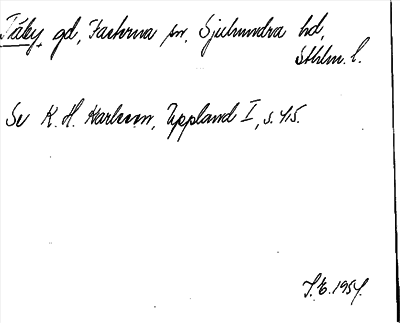 Täby, gd, Fasterna sn, Sjuhundra hd,
Sthlm. l.
Se K. H. Karlsson, Uppland I, s. 45.
S. E. 1954.